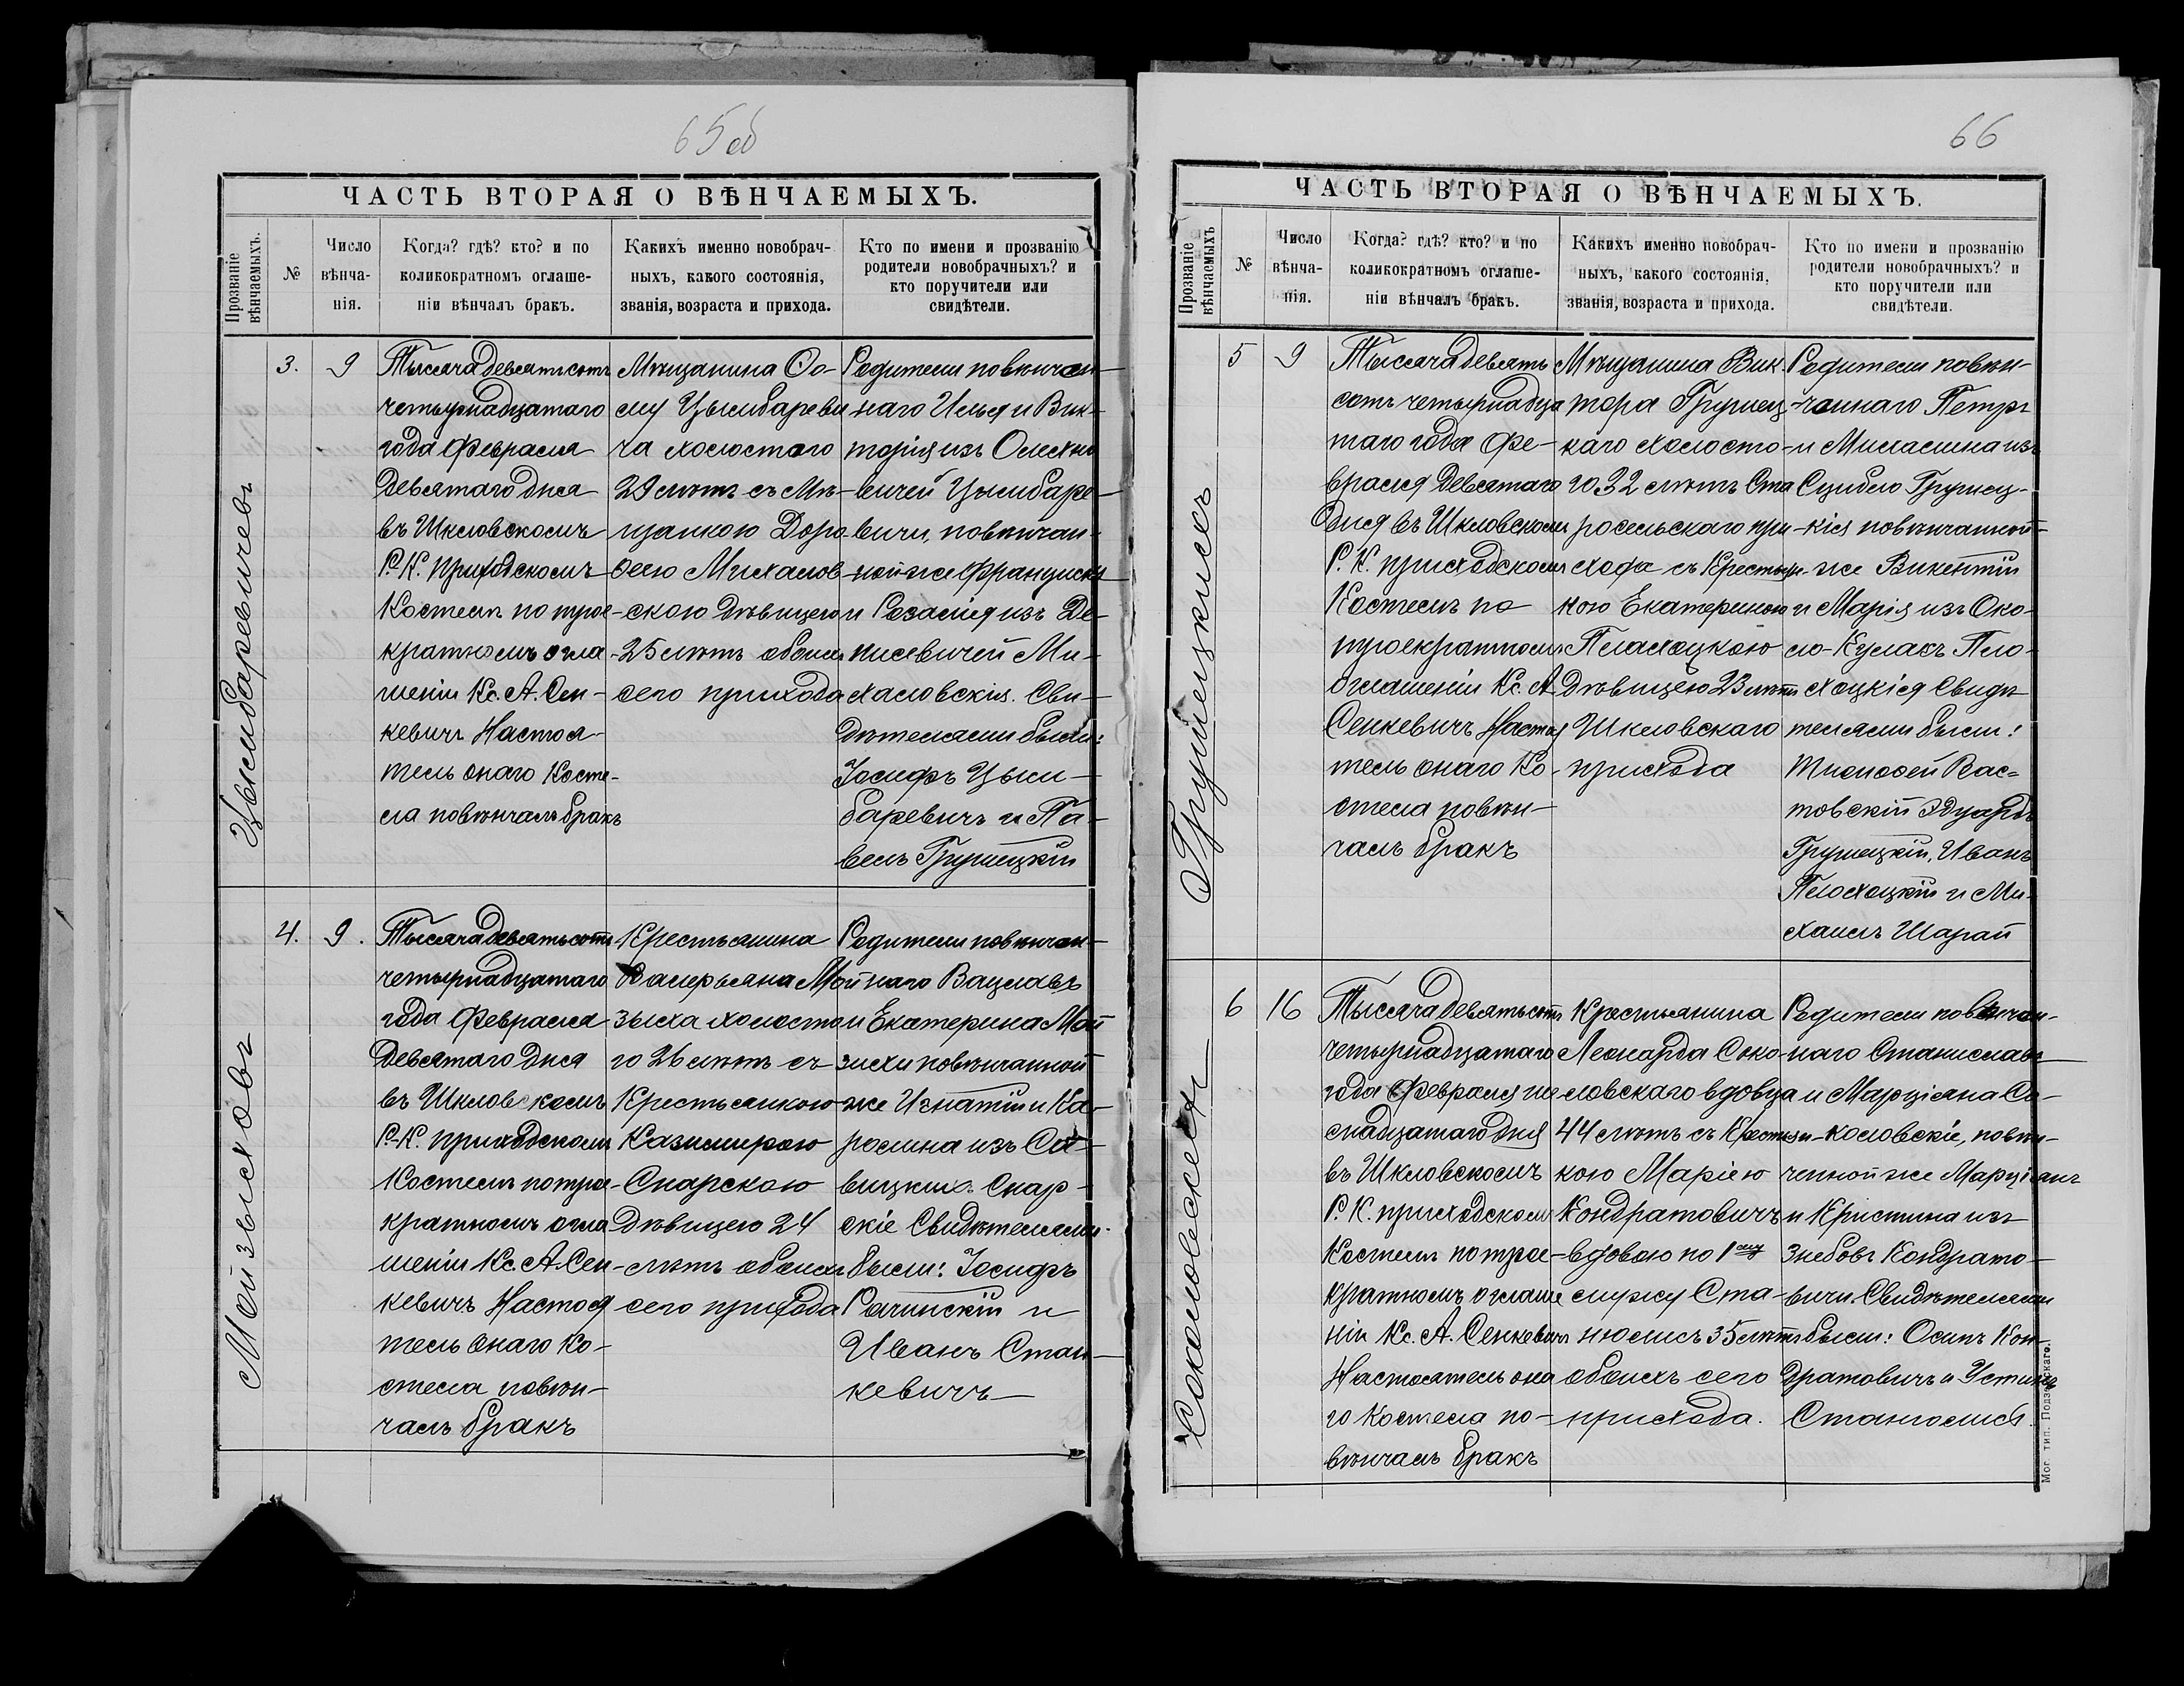 65 об
ЧАСТЬ ВТОРАЯ О ВѢНЧАЕМЫХЪ.
Прозваніе вѣнчаемыхъ.
№
Число вѣнча-нія.
Когда? гдѣ? кто? и по
коликократномъ оглаше-
ніи вѣнчалъ бракъ.
Какихъ именно новобрач-
ныхъ, какого состоянія,
званія, возраста и прихода.
Кто по имени и прозванію
родители новобрачныхъ? и
кто поручители или
свидѣтели.
Цымбаревичевъ
3.
9
Тысяча девятьсотъ
четырнадцатаго
года Февраля
Девятаго дня
въ Шкловскомъ
Р.-К. Приходскомъ
Костелѣ по трое-
кратномъ огла-
шеніи Кс. А. Сен-
кевичъ Настоя-
тель онаго Косте-
ла повѣнчалъ бракъ
Мѣщанина Ѳо-
му Цымбареви
ча холостого
29 лѣтъ съ Мѣ-
щанкою Доро-
ѳеею Михалов-
скою Дѣвицею
25 лѣтъ обоихъ
сего прихода
Родители повѣнчан-
наго Илья и Вик-
торія изъ Олехно
вичей Цымбаре-
вичи, повѣнчан-
ной же Францискъ
и Розалія изъ Де-
нисевичей Ми-
халовскія. Сви-
дѣтелями были:
Іосифъ Цым-
баревичъ и Па-
велъ Грушецкій
Мойзыховъ
4.
9.
Тысяча девятьсотъ
четырнадцатаго
года Февраля
Девятаго дня
въ Шкловскомъ
Р-К. Приходскомъ
Костелѣ по трое-
кратномъ огла
шеніи Кс. А. Сен-
кевичъ Настоя
тель онаго Ко-
стела повѣн-
чалъ бракъ
Крестьянина
Валерьяна Мой
зыха холосто
го 26 лѣтъ съ
Крестьянкою
Казимирою
Снарскою
Дѣвицею 24
лѣтъ обоихъ
сего прихода
Родители повѣнчан-
наго Вацлавъ
и Екатерина Мой
зихи повѣнчанной
же Игнатій и Ка-
ролина изъ Са-
вицкихъ Снар-
скіе Свидѣтелями
были: Іосифъ
Рачинскій и
Иванъ Стан-
кевичъ
66
ЧАСТЬ ВТОРАЯ О ВѢНЧАЕМЫХЪ.
Прозваніе вѣнчаемыхъ
№
Число вѣнча-нія.
Когда? гдѣ? кто? и по
коликократномъ оглаше-
ніи вѣнчалъ бракъ.
Какихъ именно новобрач-
ныхъ, какого состоянія,
званія, возраста и прихода.
Кто по имени и прозванію
родители новобрачныхъ? и
кто поручители или
свидѣтели.
Грушецкихъ
5
9
Тысяча девять
сотъ четырнадца
таго года Фе-
враля Девятаго
дня въ Шкловскомъ
Р. К. приходскомъ
Костелѣ по
троекратномъ
оглашеніи Кс. А
Сенкевичъ Настоя
тель онаго Ко-
стела повѣн-
чалъ бракъ
Мѣщанина Вик-
тора Грушец-
каго холосто-
го 32 лѣтъ Ста
росельскаго при-
хода съ Крестьян-
кою Екатериною
Плахоцкою
Дѣвицею 23 лѣтъ
Шкловскаго
прихода
Родители повѣн-
чаннаго Петръ
и Михалина изъ
Сцибло Грушец-
кія повѣнчанной
же Викентій
и Марія изъ Око-
ло-Кулакъ Пло-
хоцкія Свидѣ
телями были:
Тимоѳей Рас-
товскій Эдуардъ
Грушецкій, Иванъ
Плохоцкій и Ми-
хаилъ Шарай
Соколовскихъ
6
16
Тысяча девятьсотъ
четырнадцатаго
года Февраля ше
снадцатаго дня
въ Шкловскомъ
Р. К. приходскомъ
Костелѣ по трое-
кратномъ оглаше
ніи Кс. А. Сенкевичъ
Настоятель она
го Костела по-
вѣнчалъ бракъ
Крестьянина
Леонарда Соко-
ловскаго вдовца
44 лѣтъ съ Крестьян-
кою Маріею
Кондратовичъ
вдовою по 1ому
мужу Ста-
нюлисъ 35 лѣтъ
обоихъ сего
прихода.
Родители повѣнчан-
наго Станиславъ
и Марціяна Со-
коловскіе, повѣн-
ченной же Марціанъ
и Кристина изъ
Кондрато-
вичи. Свидѣтелями
были: Осипъ Кон-
дратовичъ и Устинъ
Станюлисъ.
Мог. тип. Подземскаго.